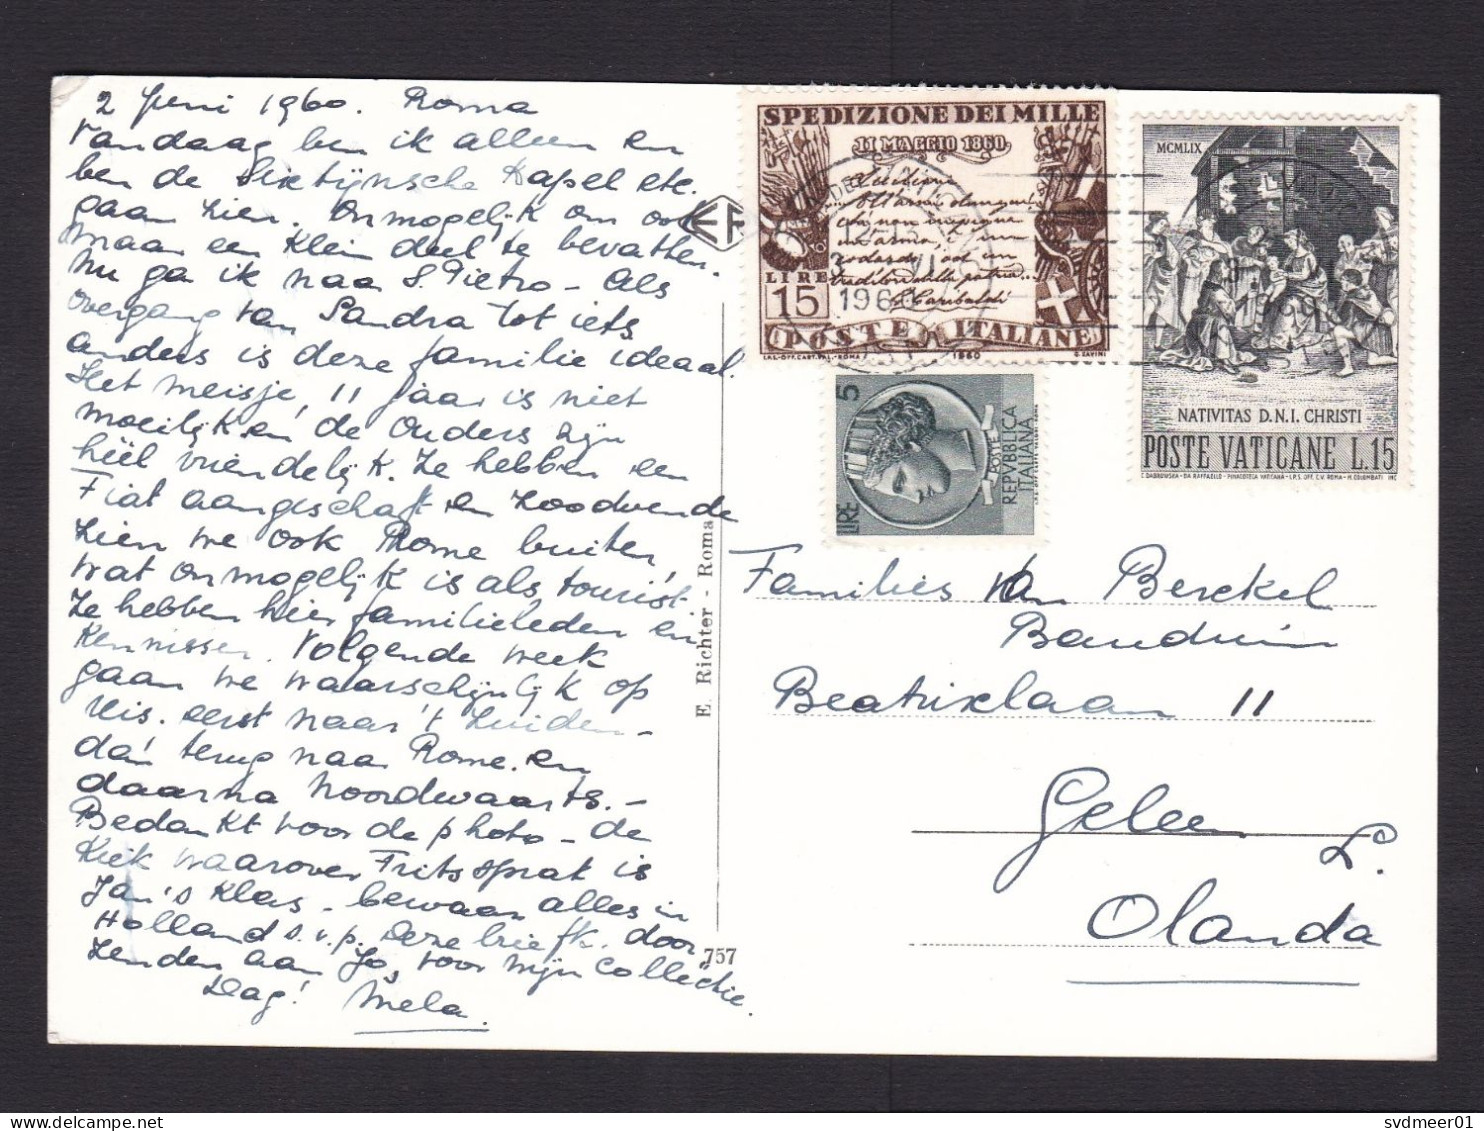 2 Juni 1960. Roma
Vandaag ben ik alleen en
ben de Sixtijnsche Kapel etc.
gaan zien. Onmogelijk om ook
maar een klein deel te bevatten.
Nu ga ik naar S. Pietro - Als
overgang van Sandra tot iets
anders is deze familie ideaal.
Het meisje, 11 jaar is niet
moeilijk en de ouders zijn
héél vriendelijk. Ze hebben een
Fiat aangeschaft en zoodoende
zien we ook Rome buiten,
wat onmogelijk is als tourist.
Ze hebben hier familieleden en
kennissen. Volgende week
gaan we waarschijnlijk op
reis. eerst naar 't Zuiden -
dan terug naar Rome. en
daarna Noordwaarts. -
Bedankt voor de photo - de
kiek waarover Frits sprak is
Jan's klas - bewaar alles in
Holland s.v.p. Deze briefk. door
zenden aan Jo, voor mijn collectie.
Dag! Mela.
E. Richter - Roma
757
SPEDIZIONE DEI MILLE
11 MAGGIO 1860
G Garibaldi
LIRE
15
POSTE ITALIANE
I.P.S.-OFF. CART. VAL.-ROMA 1960 G. SAVINI
1960
MCMLIX
NATIVITAS D.N.I. CHRISTI
POSTE VATICANE L.15
LIRE 5
POSTE
REPVBBLICA
ITALIANA
Families van Berckel
Bauduin
Beatrixlaan 11
Geleen
L.
Olanda
svdmeer01